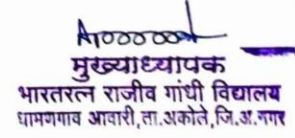 मुख्याध्यापक
भारतरत्न राजीव गांधी विद्यालय
धामणगाव आवारी, ता.अकोले, जि.अ.नगर